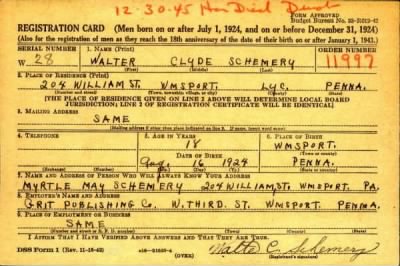 12-30-45 Hon Disch
FORM APPROVED
Budget Bureau No. 33-R012-42
REGISTRATION CARD (Men born on or after July 1, 1924, and on or before December 31, 1924)
(Also for the registration of men as they reach the 18th anniversary of the date of their birth on or after January 1, 1943.)
SERIAL NUMBER 1. NAME (Print) ORDER NUMBER
W 28 WALTER CLYDE SCHEMERY 11997
(First) (Middle) (Last)
2. PLACE OF RESIDENCE (Print)
204 WILLIAM ST. WMSPORT. LYC. PENNA.
(Number and street) (Town, township, village, or city) (County) (State)
[THE PLACE OF RESIDENCE GIVEN ON LINE 2 ABOVE WILL DETERMINE LOCAL BOARD
JURISDICTION; LINE 2 OF REGISTRATION CERTIFICATE WILL BE IDENTICAL]
3. MAILING ADDRESS
SAME
(Mailing address if other than place indicated on line 2. If same, insert word same)
4. TELEPHONE 5. AGE IN YEARS 6. PLACE OF BIRTH
18 WMSPORT.
DATE OF BIRTH
Aug. 16 1924 PENNA.
7. NAME AND ADDRESS OF PERSON WHO WILL ALWAYS KNOW YOUR ADDRESS
MYRTLE MAY SCHEMERY 204 WILLIAM ST. WMSPORT. PA.
8. EMPLOYER'S NAME AND ADDRESS
GRIT PUBLISHING CO. W. THIRD. ST. WMSPORT. PENNA.
9. PLACE OF EMPLOYMENT OR BUSINESS
SAME
I AFFIRM THAT I HAVE VERIFIED ABOVE ANSWERS AND THAT THEY ARE TRUE.
DSS Form 1 (Rev. 11-16-42) Walter C. Schemery
(Registrant's signature)